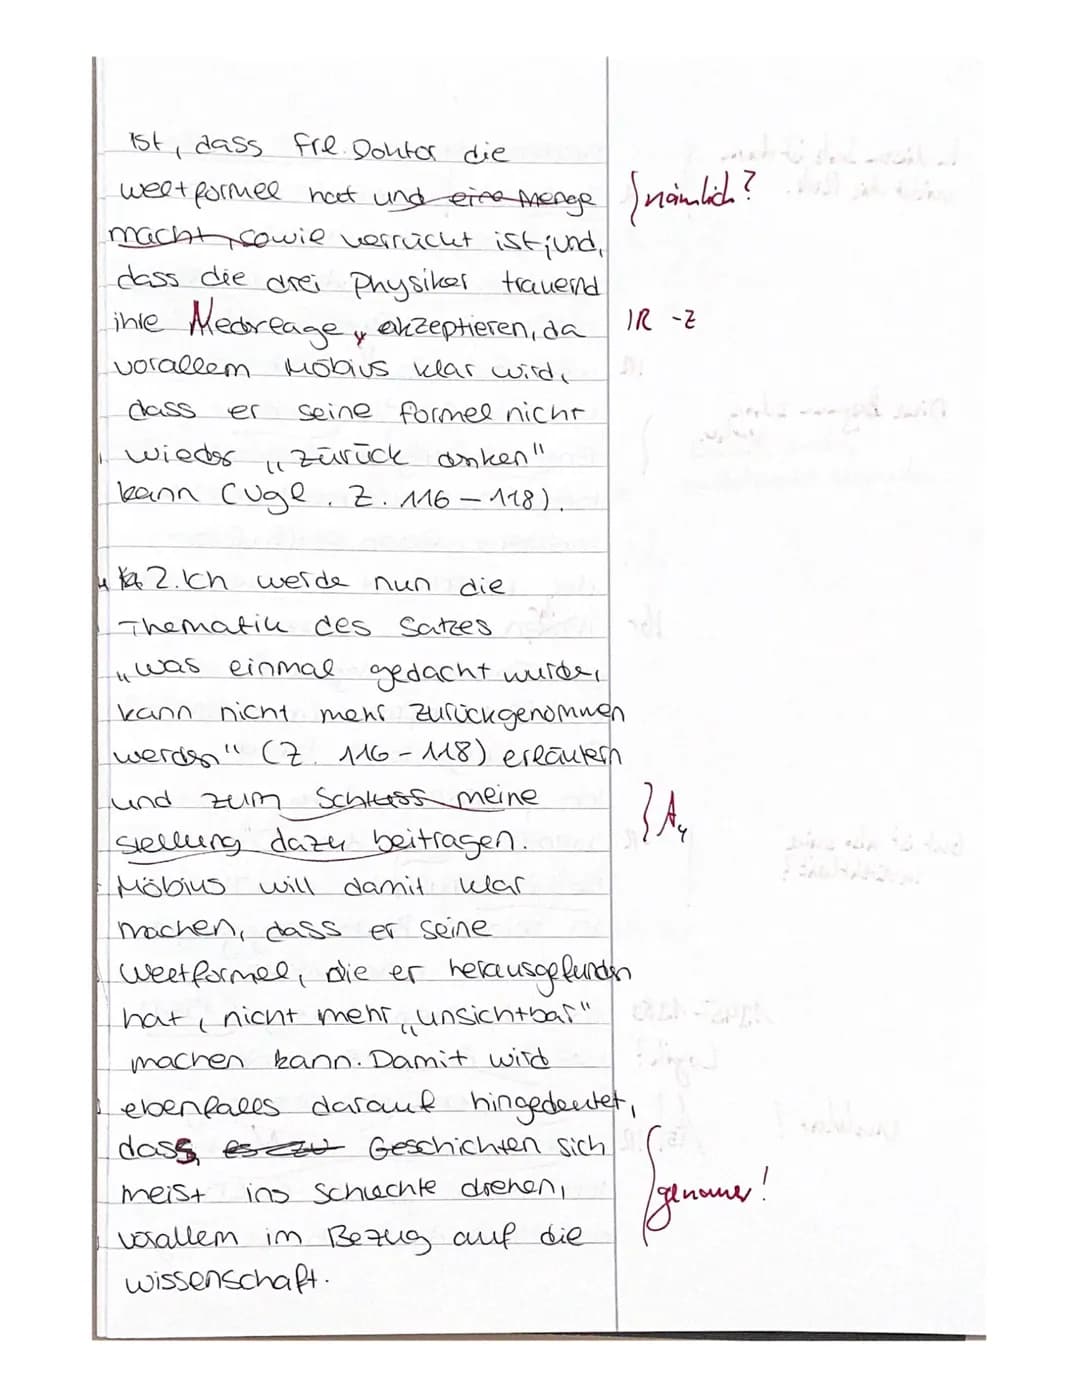 ist, dass Frl. Doktor die
weltformel hat und eine Menge
macht, sowie verrückt ist; und,
dass die drei Physiker trauernd
ihre akzeptieren, da
vorallem Möbius klar wird,
dass er seine formel nicht
wieder „zurück denken"
kann (vgl. Z. 116 – 118).
2. Ich werde nun die
Thematik des Satzes
„was einmal gedacht wurde,
kann nicht mehr zurückgenommen
werden" (Z. 116 - 118) erläutern
und zum Schluss meine
stellung dazu beitragen.
Möbius will damit klar
machen, dass er seine
Weltformel, die er herausgefunden
hat, nicht mehr „unsichtbar"
machen kann. Damit wird
ebenfalls darauf hingedeutet,
dass es zu Geschichten sich
meist ins schlechte drehen,
vorallem im Bezug auf die
wissenschaft.
nämlich?
IR -Z
A4
genauer!